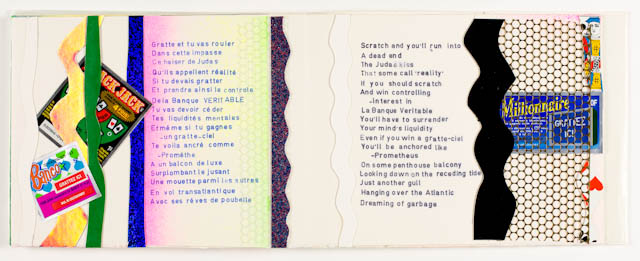 Gratte et tu vas rouler
Dans cette impasse
Ce baiser de Judas
Qu'ils appellent réalité
Si tu devais gratter
Et prendre ainsi le contrôle
De la Banque VERITABLE
Tu vas devoir céder
Tes liquidités mentales
Et même si tu gagnes
-un gratte-ciel
Te voilà ancré comme
-Prométhé
A un balcon de luxe
Surplombant le jusant
Une mouette parmi les autres
En vol transatlantique
Avec ses rêves de poubelle
BLACK JACK
Banco
GRATTEZ ICI
Scratch and you'll run into
A dead end
The Judas kiss
That some call reality
If you should scratch
And win controlling
-Interest in
La Banque Veritable
You'll have to surrender
Your mind's liquidity
Even if you win a gratte-ciel
You'll be anchored like
-Prometheus
On some penthouse balcony
Looking down on the receding tide
Just another gull
Hanging over the Atlantic
Dreaming of garbage
Millionnaire
GRATTEZ
ICI
OF